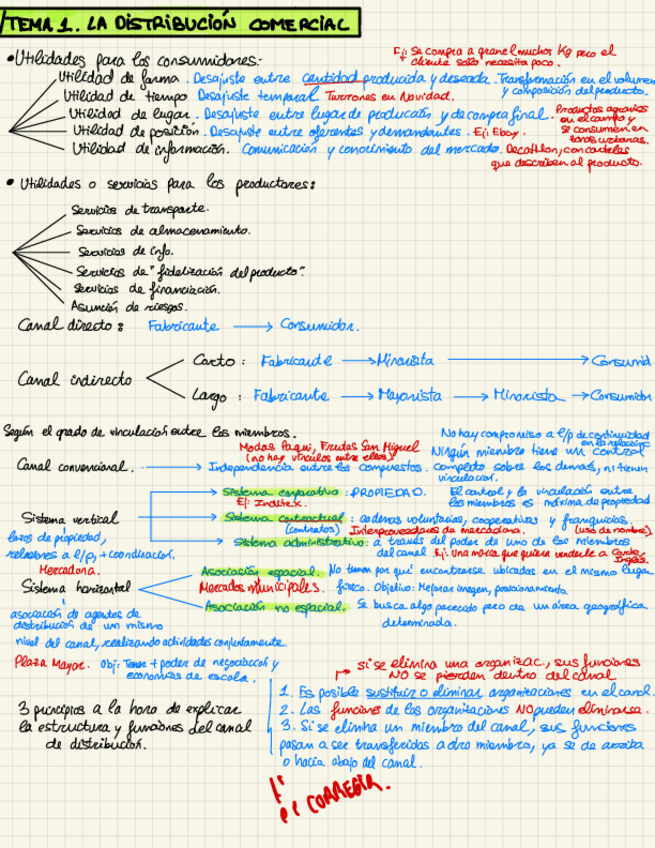 TEMA 1. LA DISTRIBUCIÓN COMERCIAL
• Utilidades para los consumidores:
Ej: Se compra a granel muchos Kg pero el
cliente solo necesita poco.
Utilidad de forma. Desajuste entre cantidad producida y deseada. Transformación en el volumen
y composición del producto.
Utilidad de tiempo Desajuste temporal Turrones en Navidad.
Utilidad de lugar. Desajuste entre lugar de producción y de compra final. Productos agrarios
en el campo y
se consumen en
zonas urbanas.
Utilidad de posición. Desajuste entre oferentes y demandantes. Ej: Ebay.
Utilidad de información. Comunicación y conocimiento del mercado. Decathlon, con carteles
que describen al producto.
• Utilidades o servicios para los productores:
Servicios de transporte.
Servicios de almacenamiento.
Servicios de info.
Servicios de "fidelización del producto".
Servicios de financiación.
Asunción de riesgos.
Canal directo: Fabricante → Consumidor.
Canal indirecto
Corto: Fabricante → Minorista → Consumid
Largo: Fabricante → Mayorista → Minorista → Consumidor
Según el grado de vinculación entre los miembros.
No hay compromiso a l/p de continuidad
en la relación
Modas Paqui, Frutas San Miguel
(no hay vínculos entre ellos)
Ningún miembro tiene un control
Canal convencional. → Independencia entre los compuestos. completo sobre los demás, ni tienen
vinculación.
Sistema corporativo: PROPIEDAD. El control y la vinculación entre
Ej: Inditex. los miembros es máxima de propiedad
Sistema vertical
Sistema contractual: cadenas voluntarias, cooperativas y franquicias.
(contratos) Interproveedores de mercadona. (uso de nombre).
lazos de propiedad,
relaciones a l/p, + coordinación.
Sistema administrativo: a través del poder de uno de los miembros
del canal Ej: Una marca que quiera venderle a Corte
Inglés.
Mercadona.
Sistema horizontal
Asociación espacial. No tienen por qué encontrarse ubicadas en el mismo lugar
Mercados municipales. físico. Objetivo: Mejorar imagen, posicionamiento.
Asociación no espacial. Se busca algo parecido pero de un área geográfica
determinada.
asociación de agentes de
distribución de un mismo
nivel del canal, realizando actividades conjuntamente.
Plaza Mayor. Obj: Tener + poder de negociación y
economías de escala.
si se elimina una organizac., sus funciones
NO se pierden dentro del canal
3 principios a la hora de explicar
la estructura y funciones del canal
de distribución.
1. Es posible sustituir o eliminar organizaciones en el canal.
2. Las funciones de las organizaciones NO pueden eliminarse.
3. Si se elimina un miembro del canal, sus funciones
pasan a ser transferidas a otro miembro, ya se de arriba
o hacia abajo del canal.
CORREGIR.